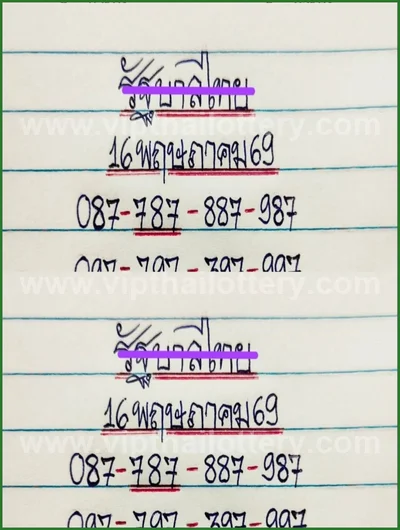 รัฐบาลไทย
www.vipthailottery.com
16 พฤษภาคม 69
087-787-887-987
097-797-397-997
www.vipthailottery.com
รัฐบาลไทย
16 พฤษภาคม 69
www.vipthailottery.com
087-787-887-987